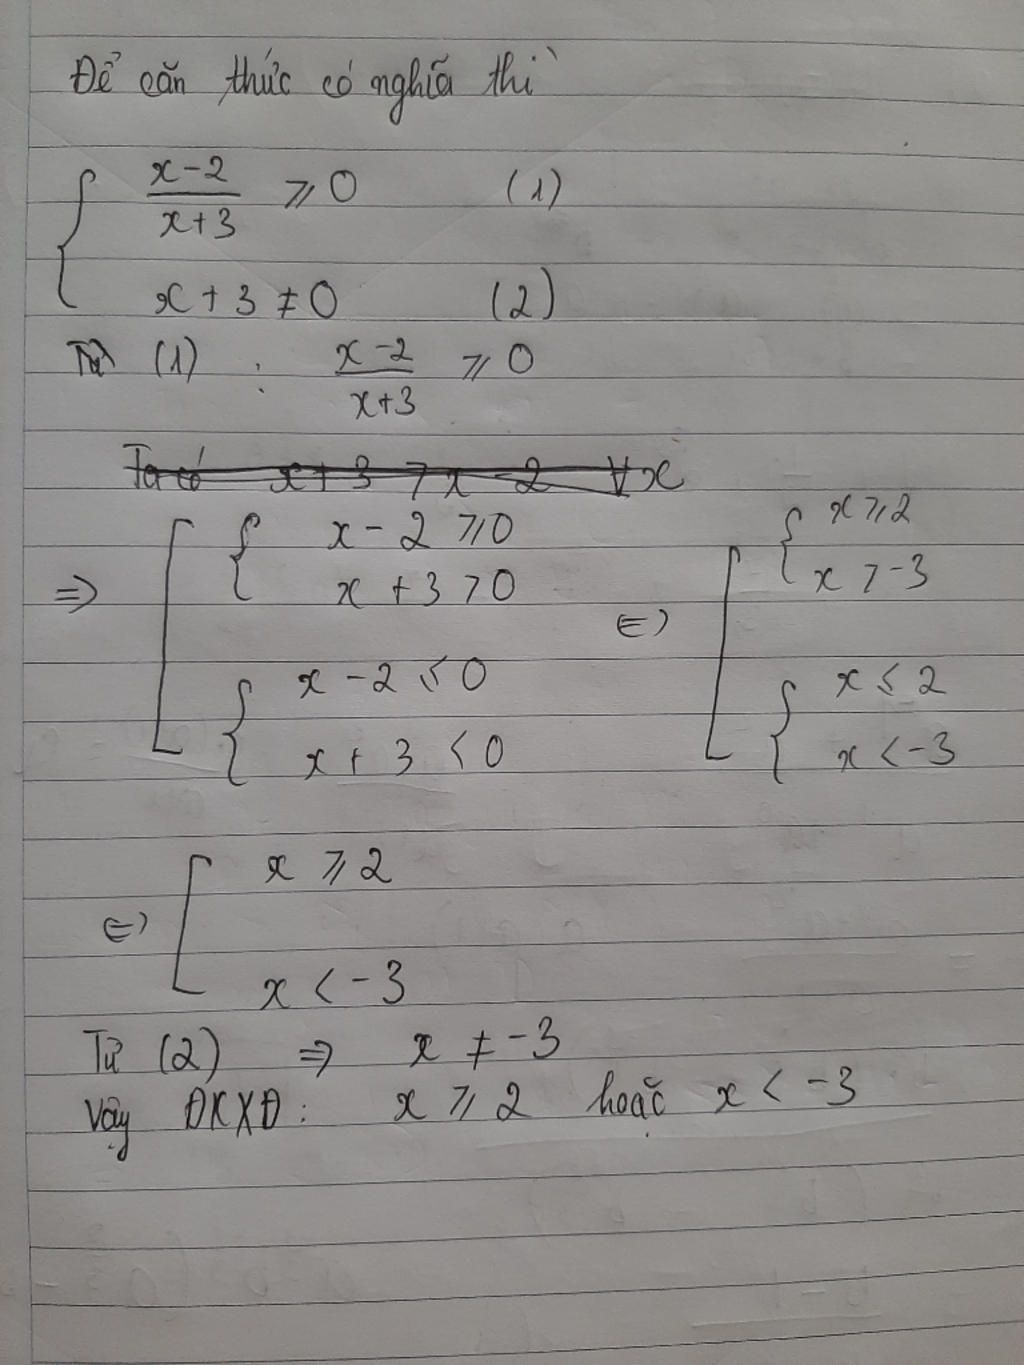 Để căn thức có nghĩa thì
{ x-2/x+3 ⩾ 0 (1)
x + 3 ≠ 0 (2)
Từ (1) : x-2/x+3 ⩾ 0
Ta có x+3 > x-2 ∀x
=> [ { x - 2 ⩾ 0
x + 3 > 0
{ x - 2 ≤ 0
x + 3 < 0
<=> [ { x ⩾ 2
x > -3
{ x ≤ 2
x < -3
<=> [ x ⩾ 2
x < -3
Từ (2) => x ≠ -3
Vậy ĐKXĐ: x ⩾ 2 hoặc x < -3